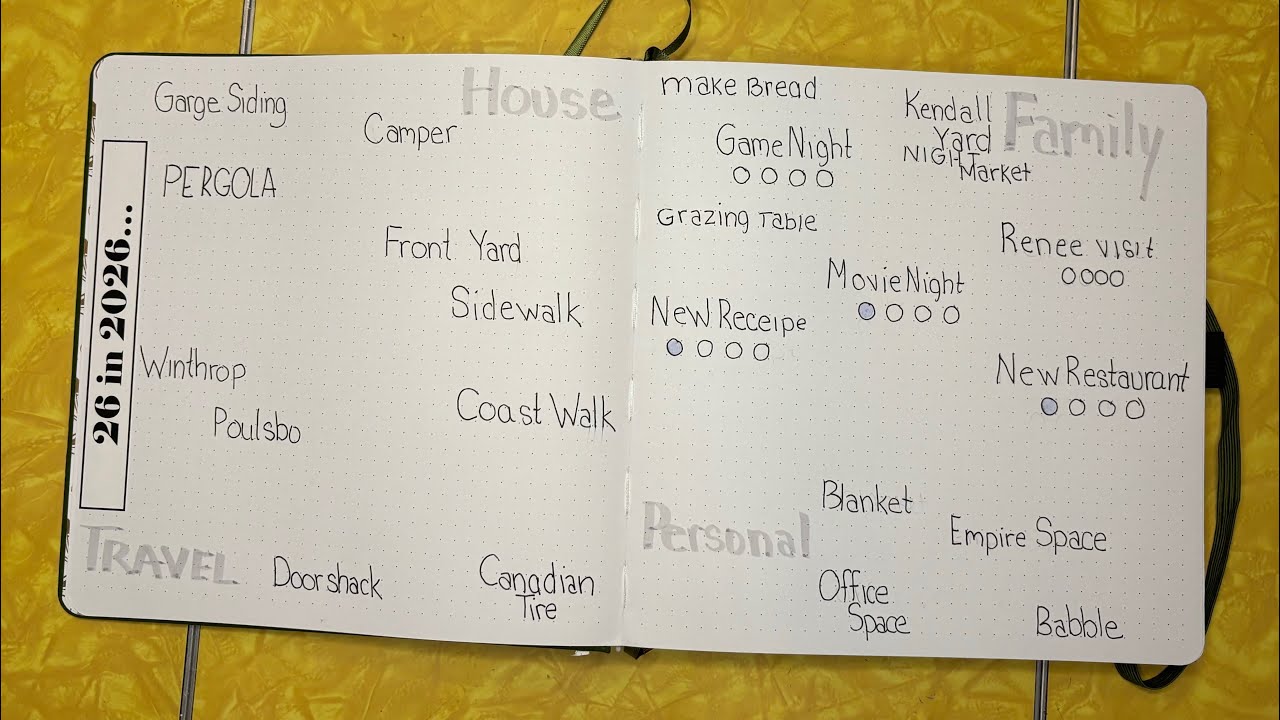 26 in 2026...
House
Garge Siding
Camper
PERGOLA
Front Yard
Sidewalk
Winthrop
Poulsbo
Coast Walk
TRAVEL
Doorshack
Canadian
Tire
Family
make Bread
Kendall
Yard
NIGHT
Market
Game Night
Grazing Table
Renee visit
Movie Night
New Receipe
New Restaurant
Personal
Blanket
Empire Space
Office
Space
Babble